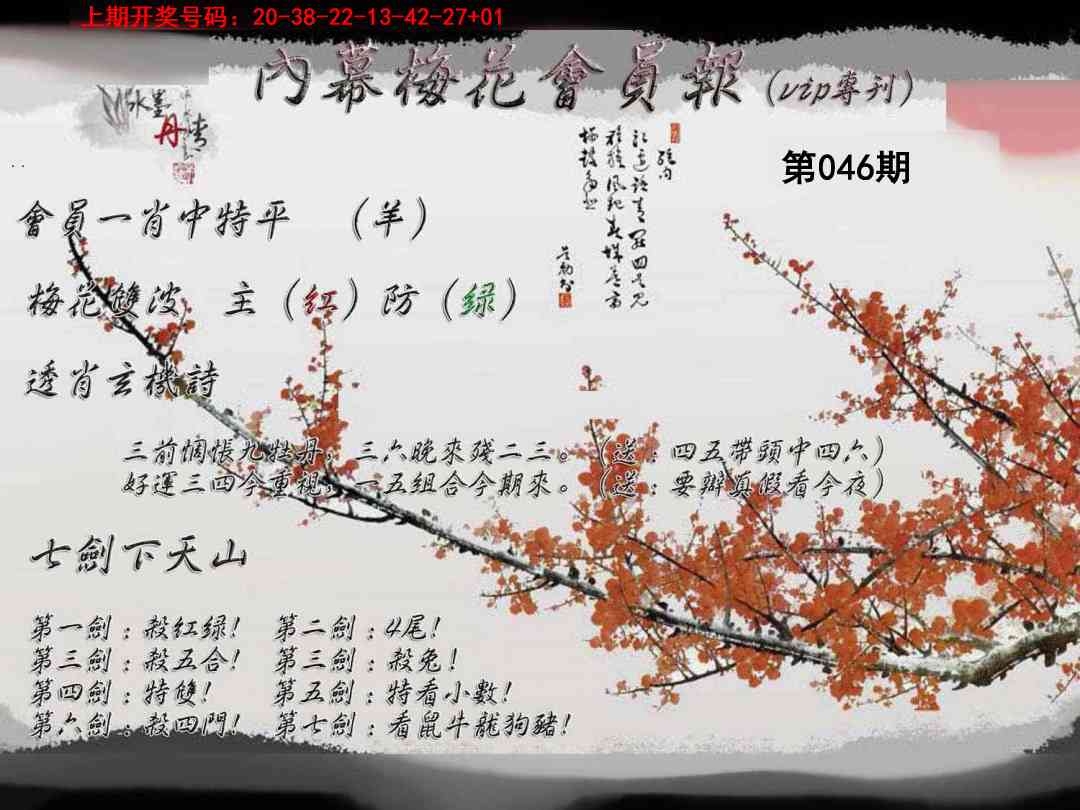 上期开奖号码：20-38-22-13-42-27+01
內幕梅花會員報（vip專刊）
水墨丹青
第046期
會員一肖中特平　（羊）
梅花雙波　主（红）防（绿）
透肖玄機詩
三前惆悵九牡丹，三六晚來殘二三。（送：四五帶頭中四六）
好運三四今重視，一五組合今期來。（送：要辯真假看今夜）
七劍下天山
第一劍：殺红绿！　第二劍：4尾！
第三劍：殺五合！　第三劍：殺兔！
第四劍：特雙！　第五劍：特看小數！
第六劍：殺四門！　第七劍：看鼠牛龍狗豬！